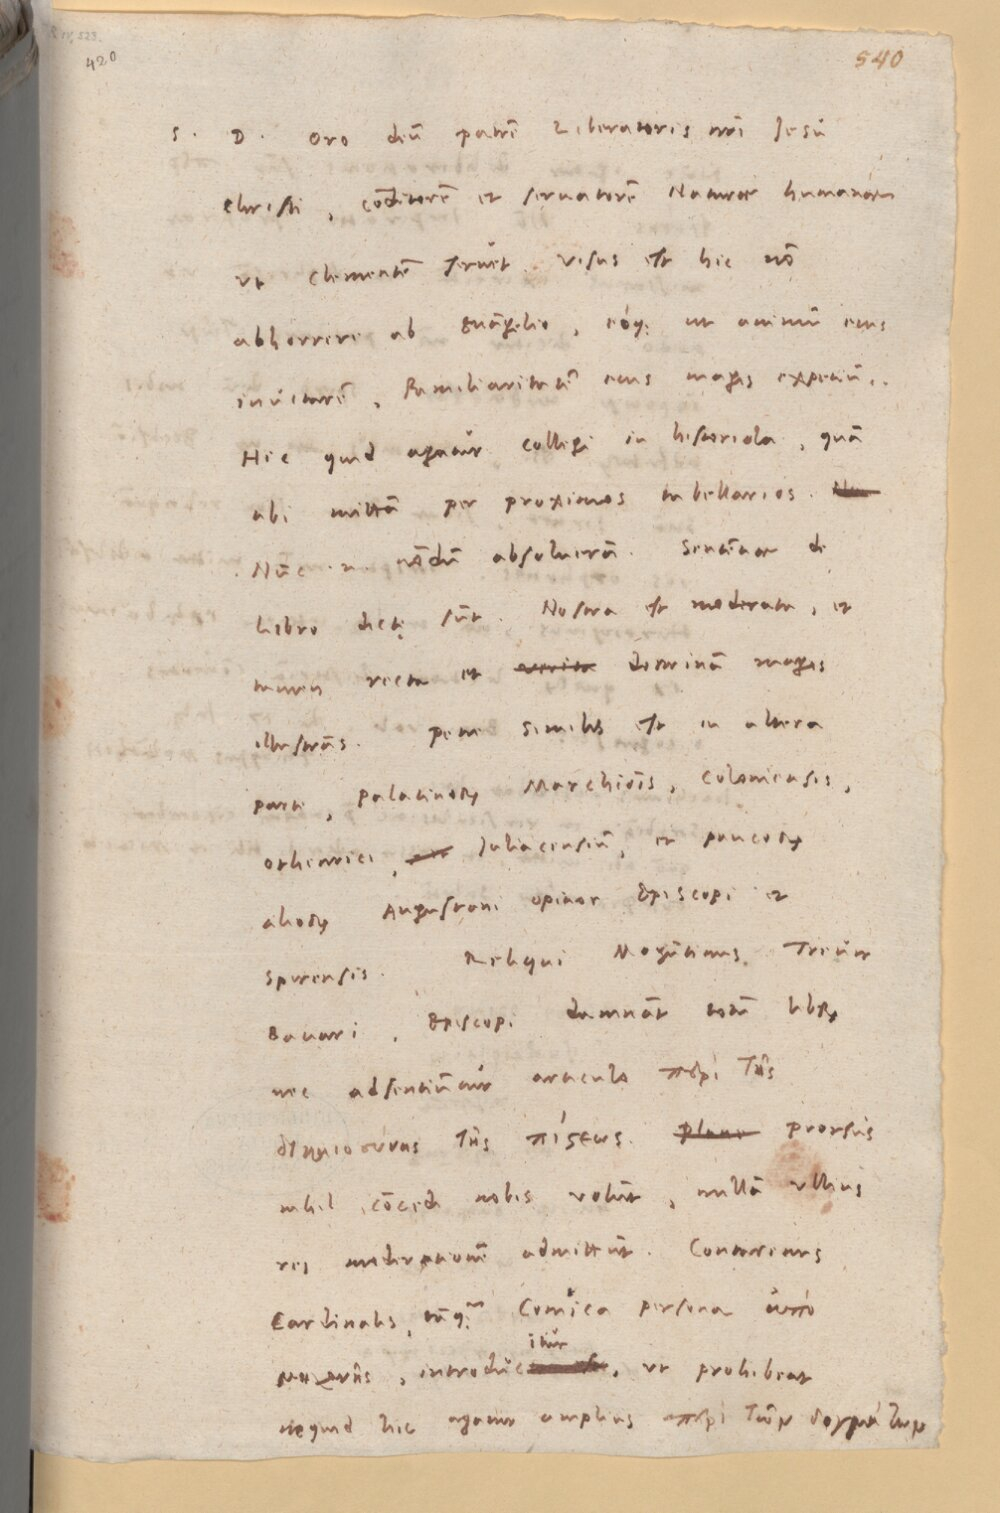 420
540
S. D. Oro deū patrē Liberatoris nr̄i Jesu
Christi, cōditorē et seruatorē Naturæ humanæ
ut Clementē seruet. Visus est hic nō
abhorrere ab Euāgelio, eoq; ut animū eius
inuitarē, familiaritatē eius magis expetiui.
Hic quid agatur collegi in historiola, quā
tibi mittā per proximos tabellarios.
Nūc .n. nōdū absoluerā. Sententiæ de
Libro dictę sūt. Nostra est moderata, et
tamen recta et doctrinā magis
illustrās. pene similis est in altera
parte, palatinorȝ Marchiōis, Coloniensis,
othearici, Juliacensiū, et paucorȝ
aliorȝ Augustani opinor Episcopi et
spirensis. Reliqui Mogūtinus, Treuir
Bauari, Episcopi damnāt totū librȝ
nec adsentiūtur articulo περὶ τῆς
δικαιοσύνης τῆς πίστεως. prorsus
nihil cōcedi nobis volūt, nullā ullius
rei moderationē admittūt. Contarenus
Cardinalis, tāq; Comica persona ἀπὸ
μηχανῆς, introducitur, ut prohibeat
nequid hic agatur amplius περὶ τῶν δογμάτων